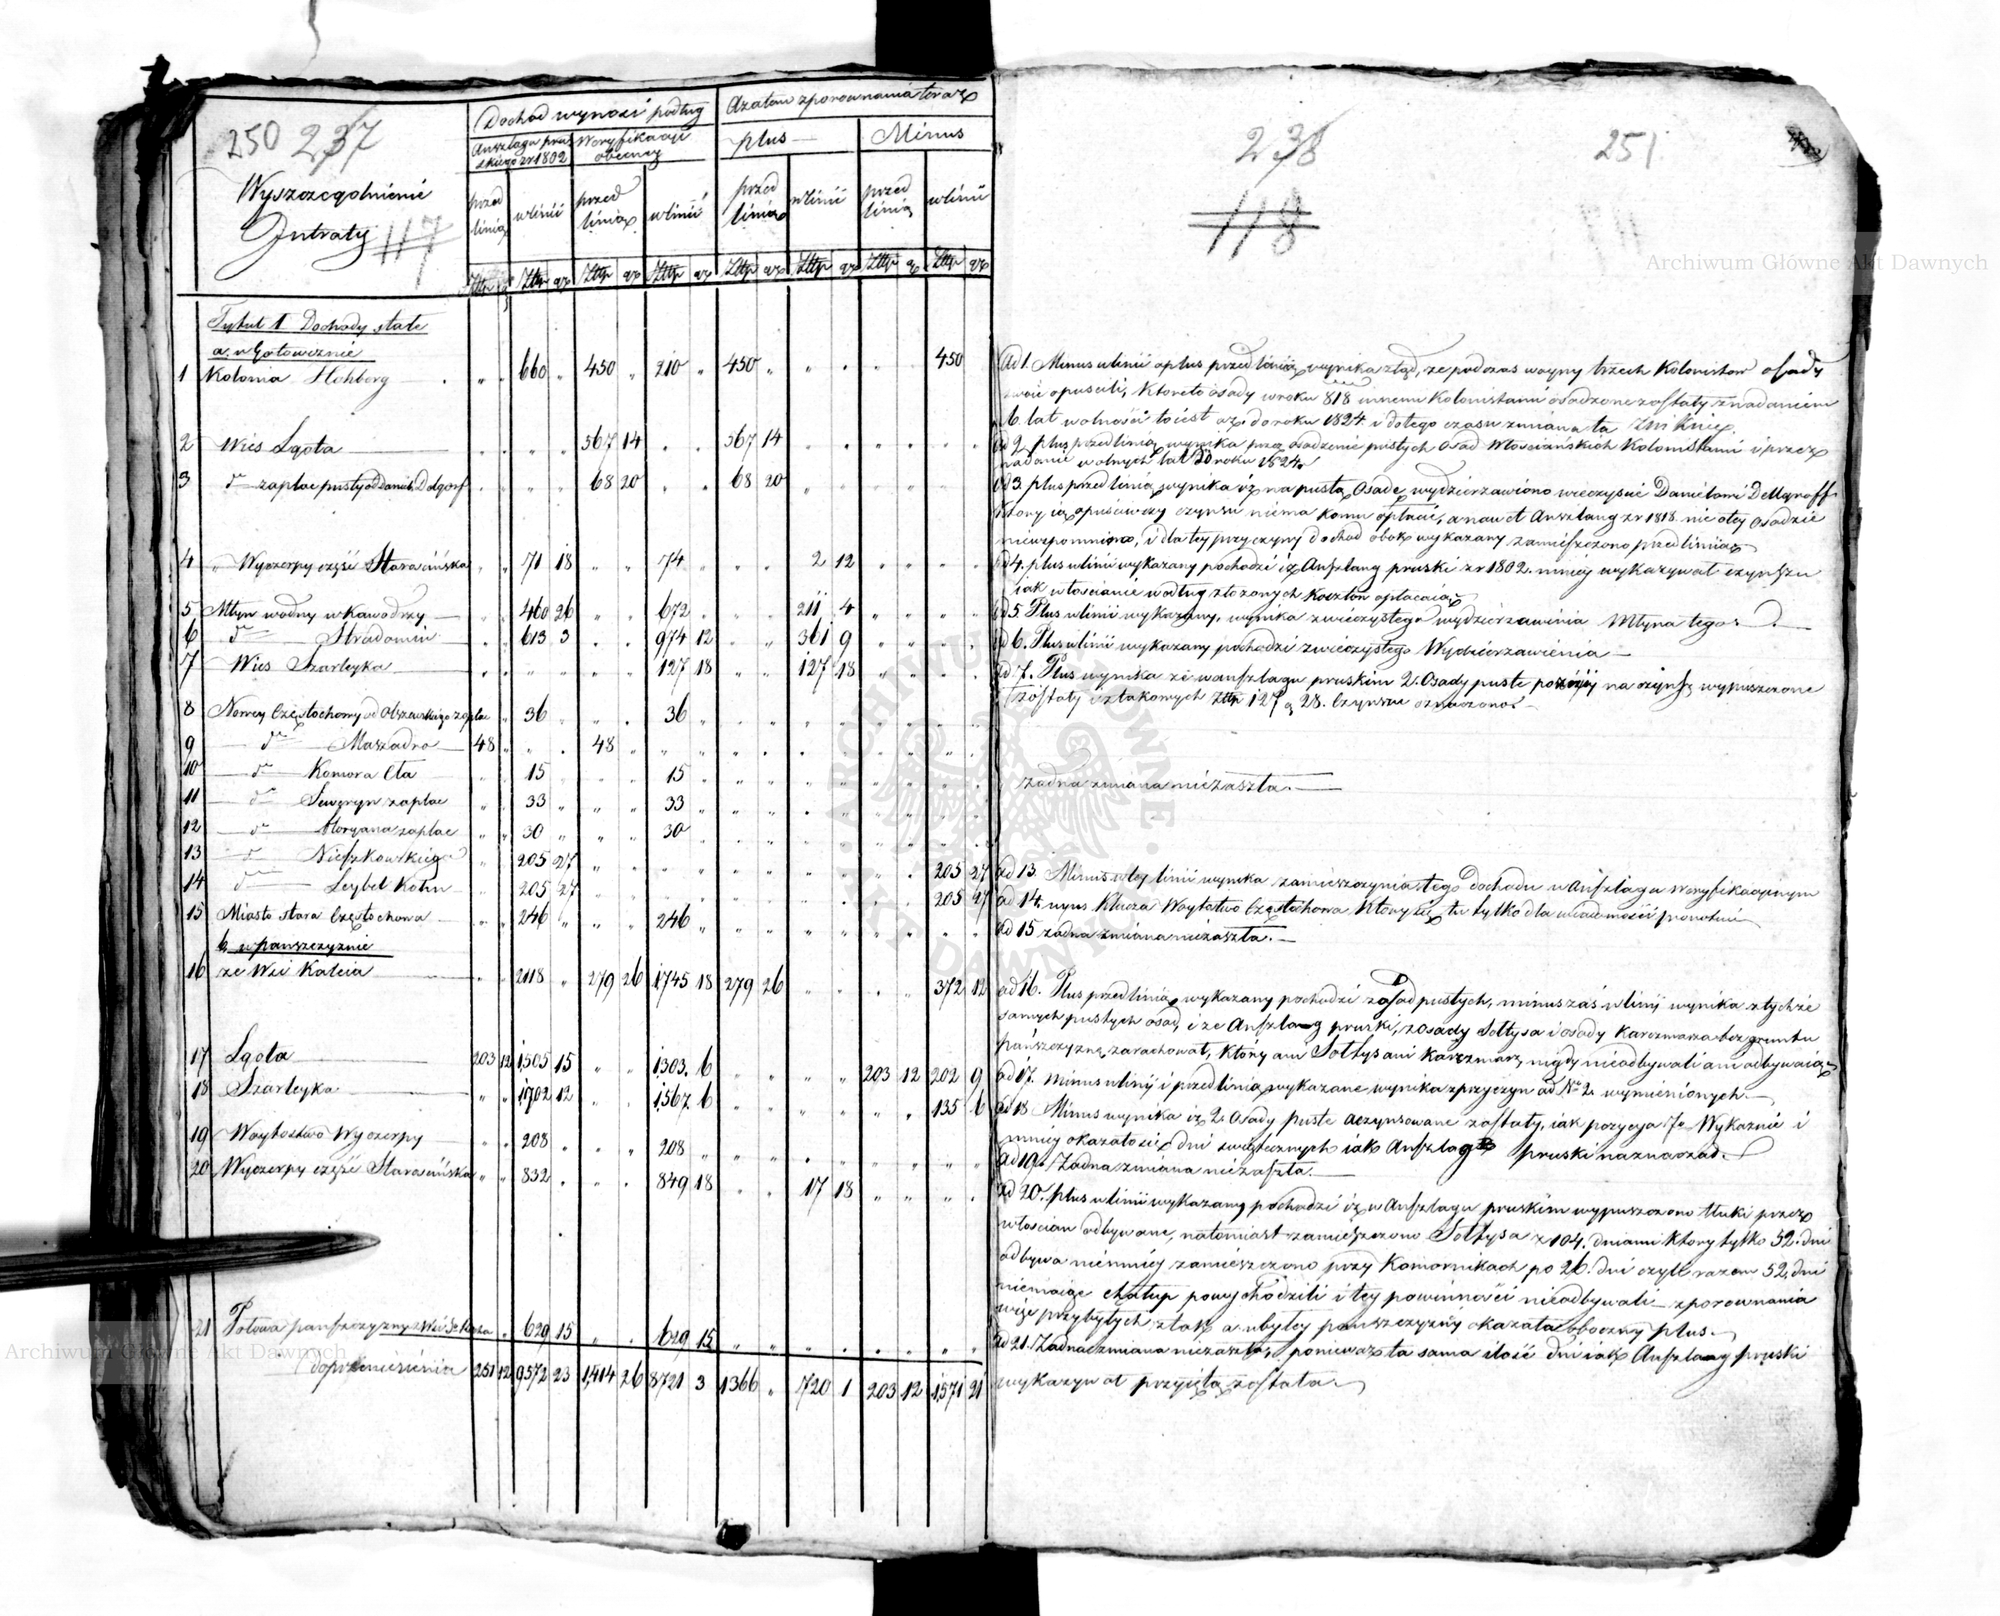 250 237
117
Wyszczególnienie
Intraty
Dochod wynosi podług
A zatem z porownania teraz
Anszlagu pru
skiego zr 1802
Weryfikacyi
obecney
plus
Minus
przed linią | w linii | przed linią | w linii | przed linią | w linii | przed linią | w linii
Złtp | gr | Złtp | gr | Złtp | gr | Złtp | gr | Złtp | gr | Złtp | gr | Złtp | g | Złtp | gr
Tytuł 1 Dochody stałe
a. w Gotowiznie
1 Kolonia Hohberg 660 450 210 450 450
2 Wies Lgota 567 14 567 14
3 do zaplac pusty od Daniel Delgorf 68 20 68 20
4 " Wyczerpy część Starościńska 71 18 74 2 12
5 Młyn wodny w Kawodrzy 460 26 672 211 4
6 do Stradomiu 613 3 974 12 361 9
7 Wies Szarleyka 127 18 127 18
8 Nowey Częstochowy od Olszewskiego zaplac 36 36
9 do Maszadro 48 48
10 do Komora Cła 15 15
11 do Seweryn zaplac 33 33
12 do Floryana zaplac 30 30
13 do Nieszkowskiego 205 27 205 27
14 do Leybel Kohn 205 27 205 27
15 Miasto stara Częstochowa 246 246
b. w panszczyznie
16 ze Wsi Kalcia 2118 279 26 1745 18 279 26 372 12
17 Lgota 203 12 1505 15 1303. 6 203 12 202 9
18 Szarleyka 1702 12 1567 6 135 6
19 Woytostwo Wyczerpy 208 208
20 Wyczerpy część Starościńska 832 849 18 17 18
21 Połowa panszczyzny z Wsi 629 15 629 15
do przeniesienia 251 12 9572 23 1,414 26 8721 3 1366 " 720 1 203 12 1571 21
238
118
251
Ad 1. Minus w linii a plus przed linią wynika ztąd, że podczas woyny trzech Kolonistow osady
swoie opuscili, ktoreto osady w roku 818 innemi Kolonistami osadzone zostały z nadaniem
6. lat wolności to iest aż do roku 1824 i do tego czasu zmiana ta zniknie
ad 2. plus przed linią wynika przez osadzenie pustych osad Włościańskich Kolonistami i przez
nadanie wolnych lat do roku 1824.
ad 3. plus przed linią wynika iż na pustą Osadę wydzierzawiono wieczyscie Danielowi Dellgroff
ktory ią opusciwszy czynszu niema komu opłacić, a nawet Anszlag zr 1818 nie o tey osadzie
niewspomniono, i dla tey przyczyny dochod obok wykazany zamieszczono przed linią
ad 4. plus w linii wykazany pochodzi iż Anszlag pruski zr 1802. mniey wykazywał czynszu
iak włościanie według złożonych kwitow opłacaią
ad 5. Plus w linii wykazany, wynika z wieczystego wydzierzawienia Młyna tego
ad 6. Plus w linii wykazany pochodzi z wieczystego Wydzierzawienia
ad 7. Plus wynika że w anszlagu pruskim 2. Osady puste pozniey na czynsz wypuszczone
zostały i z takowych Złtp 127 g 28. Czynszu oznaczono.
żadna zmiana niezaszła.
ad 13. Minus w tey linii wynika zamieszczynia tego dochodu w Anszlagu Weryfikacyinym
ad 14. Klucza Woytostwo Częstochowa ktory się tu tylko dla wiadomości
ad 15 żadna zmiana niezaszła.
ad 16. Plus przed linią wykazany pochodzi z osad pustych, minus zaś w linii wynika z tychże
samych pustych osad, i że Anszlag pruski, z osady Sołtysa i osady Karczmarza bez gruntu
pańszczyznę zarachował, który ani Sołtys ani Karczmarz nigdy nieodbywali ani odbywaią
ad 17. Minus w linii i przed linią wykazane wynika z przyczyn ad No 2. wymienionych.
ad 18. Minus wynika iż 2. Osady puste oczynszowane zostały, iak pozycya 7a Wykaznie i
mniey okazałości dni świątecznych iak Anszlag pruski naznaczał.
ad 19. Żadna zmiana niezaszła.
ad 20. plus w linii wykazany pochodzi iż w Anszlagu pruskim wypuszczono tłuki przez
włościan odbywane, natomiast zamieszczono Sołtysa z 104. dniami ktory tylko 52. dni
odbywa niemniey zamieszczono przy Komornikach po 26. dni czyli razem 52. dni
niemaiąc chałup powychodzili i tey powinności nieodbywali z porownania
więc przybyłych ztąd a ubytey panszczyzny okazała oboczny plus.
ad 21. Żadna zmiana niezaszła, ponieważ ta sama ilość dni iak Anszlag pruski
wykazywał przyiętą została.
Archiwum Główne Akt Dawnych
Archiwum Główne Akt Dawnych